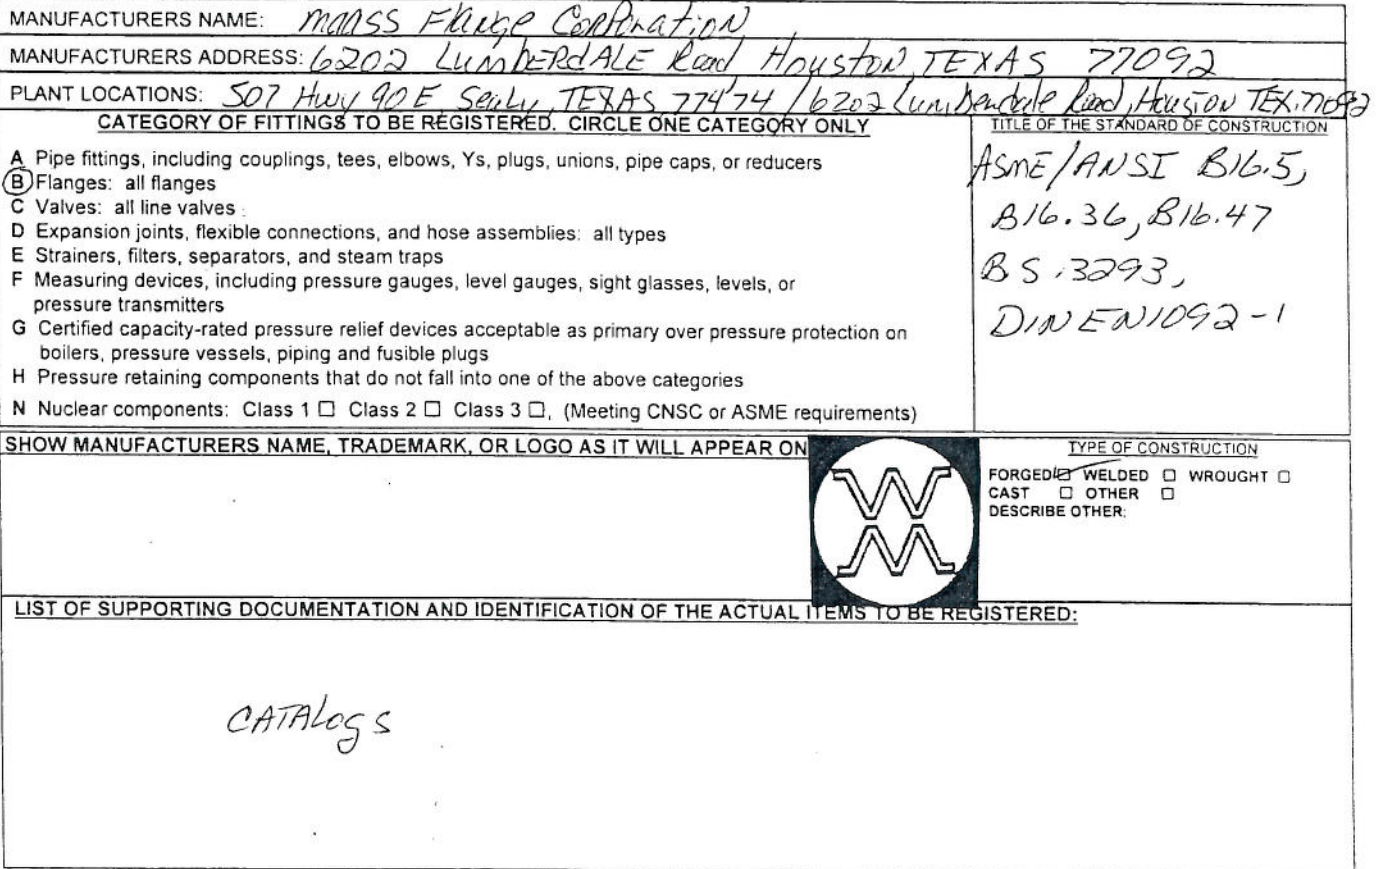 MANUFACTURERS NAME: MAASS FLANGE CORPORATION
MANUFACTURERS ADDRESS: 6202 LUMBERDALE Road Houston, TEXAS 77092
PLANT LOCATIONS: 507 Hwy 90 E Sealy, TEXAS 77474 / 6202 Lumberdale Road, Houston TEX. 77092
CATEGORY OF FITTINGS TO BE REGISTERED. CIRCLE ONE CATEGORY ONLY
A Pipe fittings, including couplings, tees, elbows, Ys, plugs, unions, pipe caps, or reducers
B Flanges: all flanges
C Valves: all line valves
D Expansion joints, flexible connections, and hose assemblies: all types
E Strainers, filters, separators, and steam traps
F Measuring devices, including pressure gauges, level gauges, sight glasses, levels, or
pressure transmitters
G Certified capacity-rated pressure relief devices acceptable as primary over pressure protection on
boilers, pressure vessels, piping and fusible plugs
H Pressure retaining components that do not fall into one of the above categories
N Nuclear components: Class 1 ☐ Class 2 ☐ Class 3 ☐, (Meeting CNSC or ASME requirements)
TITLE OF THE STANDARD OF CONSTRUCTION
ASME/ANSI B16.5,
B16.36, B16.47
BS.3293,
DIN EN1092-1
SHOW MANUFACTURERS NAME, TRADEMARK, OR LOGO AS IT WILL APPEAR ON
TYPE OF CONSTRUCTION
FORGED ☑ WELDED ☐ WROUGHT ☐
CAST ☐ OTHER ☐
DESCRIBE OTHER:
LIST OF SUPPORTING DOCUMENTATION AND IDENTIFICATION OF THE ACTUAL ITEMS TO BE REGISTERED:
CATALOGS